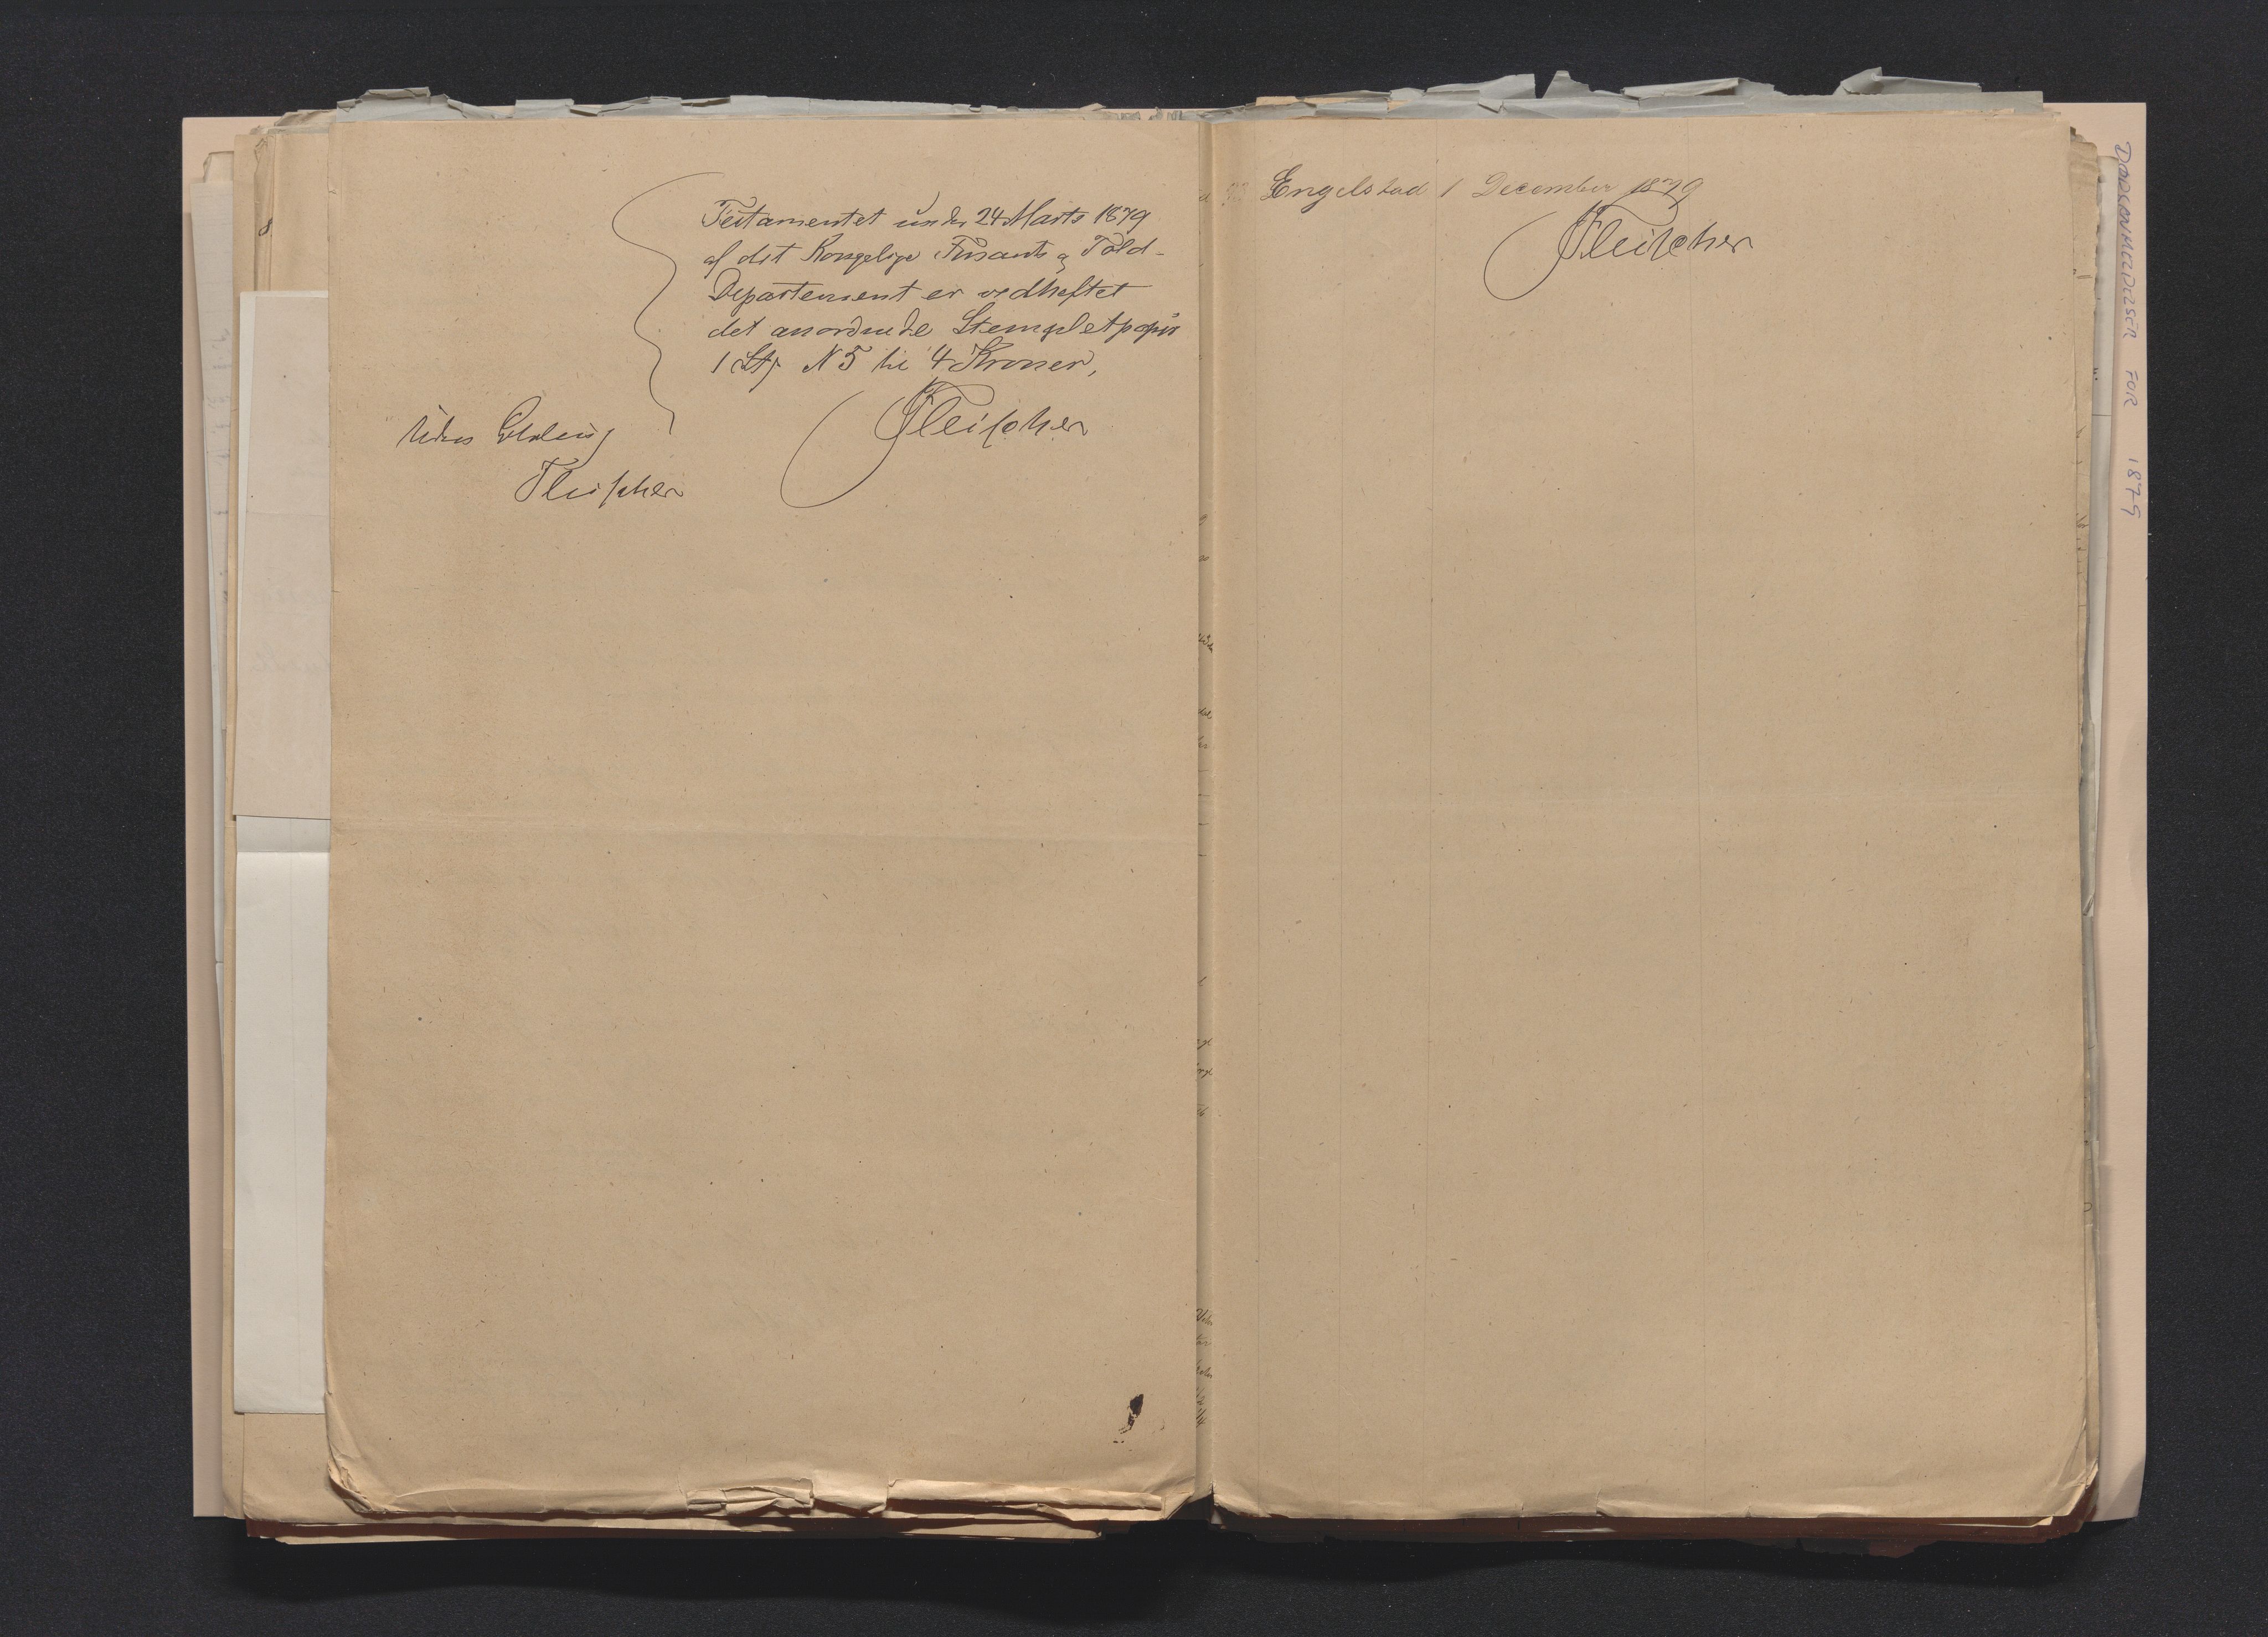 Testamentet under 24 Marts 1879
af det Kongelige Finants og Told-
Departement er vedheftet
det anordnede Stempletpapir
1 Stp. N 5 til 4 Kroner,
Fleischer
Fleischer
Engelstad 1 December 1879
Fleischer
DØDSANMELDELSER FOR 1879